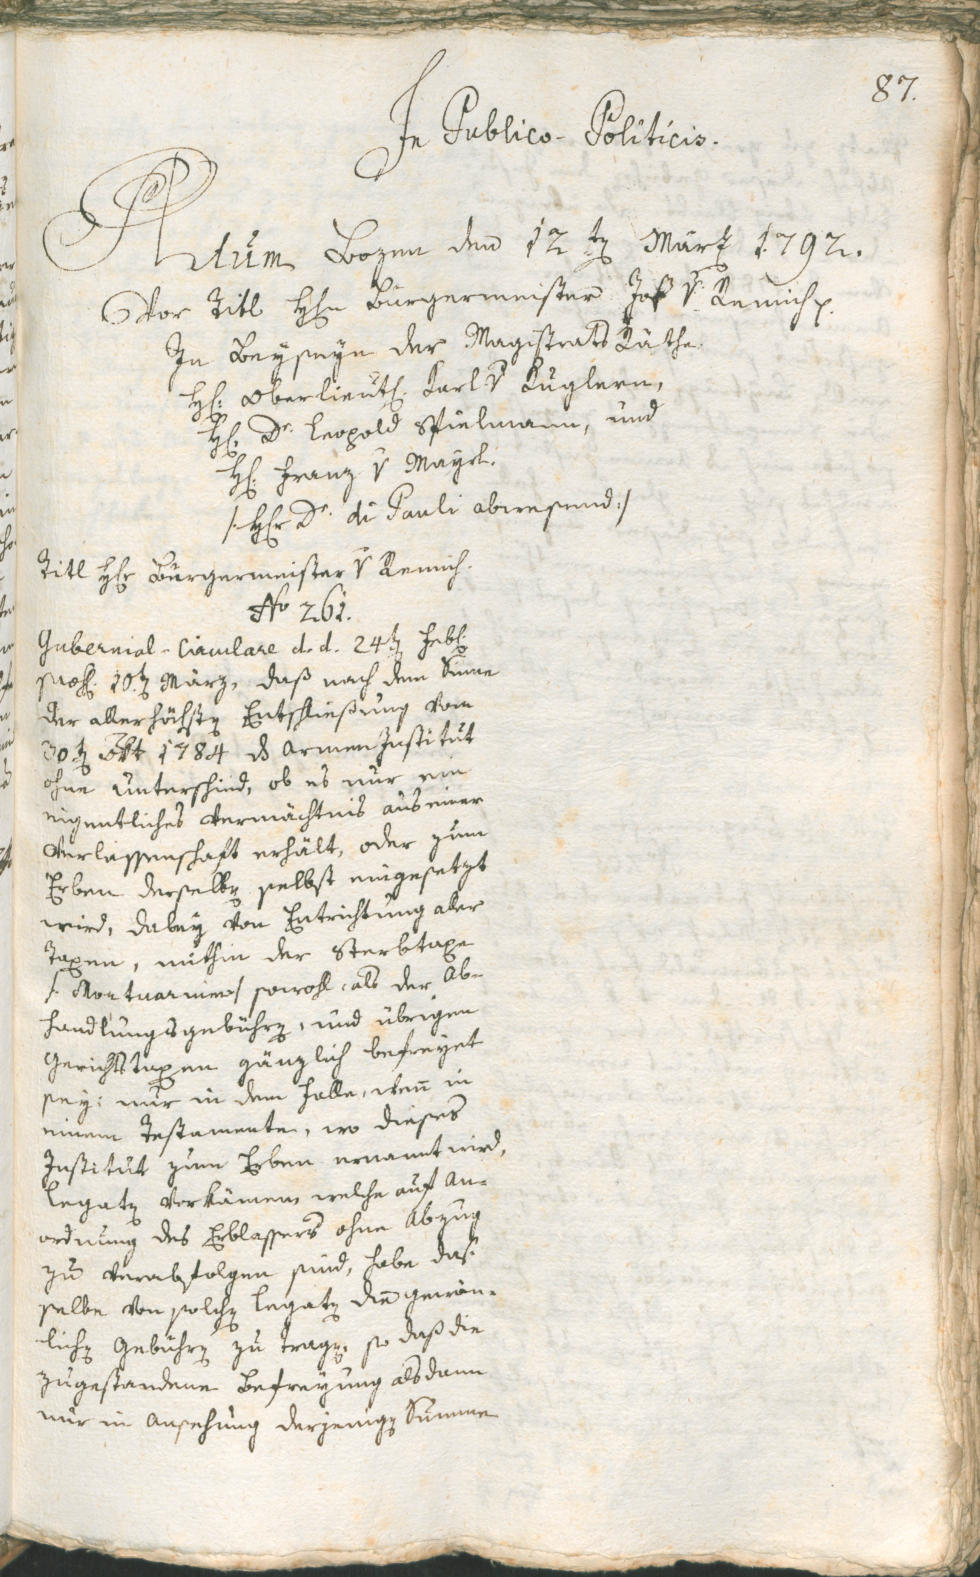 87.
In Publico-Politicis.
Actum Bozen den 12 tz März 1792.
Vor Titl Hhn Bürgermeister Jos v. Remich p.
In Beyseyn der Magistrats Räthe.
H: Oberlieut: Karl v Kuglern,
H: Dr. Leopold Spielmann, und
H: Franz v Mayrl.
/: Hhr Dr. di Pauli abwesend :/
Titl Hhr Bürgermeister v Remich.
No 261.
Gubernial-Circulare d. d. 24tz Feb:
praes. 10tz März, daß nach dem Sinne
der allerhöchstn Entschließung vom
30tz 1784 ds Armen Institut
ohne Unterschied, ob es nur ein
eigentliches Vermächtnis aus einer
Verlassenschaft erhält, oder zum
Erben derselbn selbst eingesetzt
wird, dabey von Entrichtung aller
Taxen, mithin der Sterbtaxe
/: Mortuarium :/ sowohl, als der Ab-
handlungsgebührn, und übrigen
Gerichtstaxen gänzlich befreyet
sey: nur in dem Falle, wenn in
einem Testamente, wo dieses
Institut zum Erben ernannt wird,
Legatn vorkämen, welche auf An-
ordnung des Erblassers ohne Abzug
zu verabfolgen sind, habe das-
selbe von solchn Legatn die gewön-
lichn Gebührn zu tragn, so daß die
zugestandene Befreyung alsdann
nur in Ansehung derjenign Summe